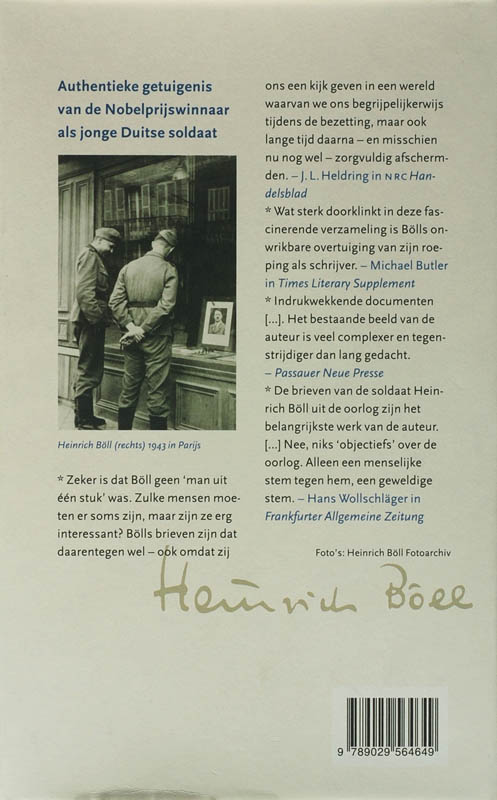 Authentieke getuigenis
van de Nobelprijswinnaar
als jonge Duitse soldaat
Heinrich Böll (rechts) 1943 in Parijs
* Zeker is dat Böll geen ‘man uit
één stuk’ was. Zulke mensen moe-
ten er soms zijn, maar zijn ze erg
interessant? Bölls brieven zijn dat
daarentegen wel – oók omdat zij
ons een kijk geven in een wereld
waarvan we ons begrijpelijkerwijs
tijdens de bezetting, maar ook
lange tijd daarna – en misschien
nu nog wel – zorgvuldig afscherm-
den. – J. L. Heldring in NRC Han-
delsblad
* Wat sterk doorklinkt in deze fas-
cinerende verzameling is Bölls on-
wrikbare overtuiging van zijn roe-
ping als schrijver. – Michael Butler
in Times Literary Supplement
* Indrukwekkende documenten
[...]. Het bestaande beeld van de
auteur is veel complexer en tegen-
strijdiger dan lang gedacht.
– Passauer Neue Presse
* De brieven van de soldaat Hein-
rich Böll uit de oorlog zijn het
belangrijkste werk van de auteur.
[...] Nee, niks ‘objectiefs’ over de
oorlog. Alleen een menselijke
stem tegen hem, een geweldige
stem. – Hans Wollschläger in
Frankfurter Allgemeine Zeitung
Foto's: Heinrich Böll Fotoarchiv
Heinrich Böll
9 789029 564649